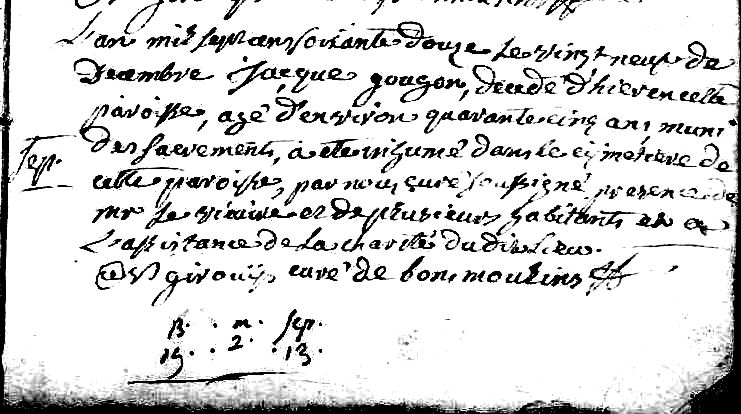 L'an mil sept cens soixante douze le vingt neuf de
Decembre jacque gougon, decedé d'hier en cette
paroisse, agé d'environ quarante cinq ans muni
des sacrements, a eté inhumé dans le cimetiere de
Sep.
cette paroisse, par nous curé soussigné presence de
mr le vicaire et de plusieurs habitants et a
L'assistance de la charité du dit lieu.
girouy curé de bonsmoulins
B. . m . sep.
15 . . 2 . . 13.